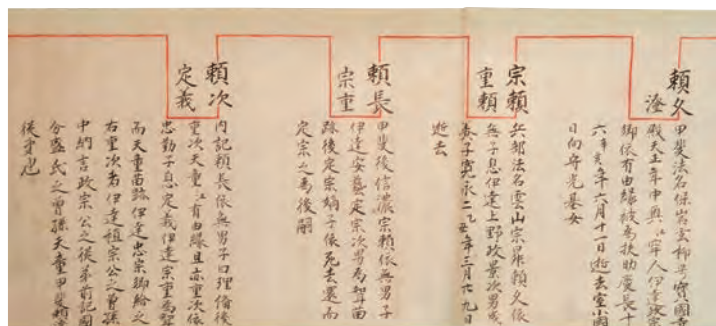 頼久
澄
甲斐法名保岩玄柳
殿天正年中奥江牢人伊達政宗
卿依有由縁被為扶助慶長十
六辛亥年六月十一日逝去室小國
日向守光基女
宗頼
重頼
兵部法名雲山宗
無子息伊達上野政景次男
養子寛永二乙丑年三月六九日
逝去
頼長
宗重
甲斐後信濃宗頼依無男子
伊達安藝定宗次男為聟苗
跡後定宗嫡子依死去還而
定宗之為後嗣
頼次
定義
内記頼長依無男子口理備後
重次天童江有由縁且亦重次依
忠勤子息定義伊達宗重為聟
而天童苗跡伊達忠宗卿給之
右重次者伊達祖宗公之曾孫
中納言政宗公之従弟前記国
分盛氏之曾孫天童甲斐頼
従弟也